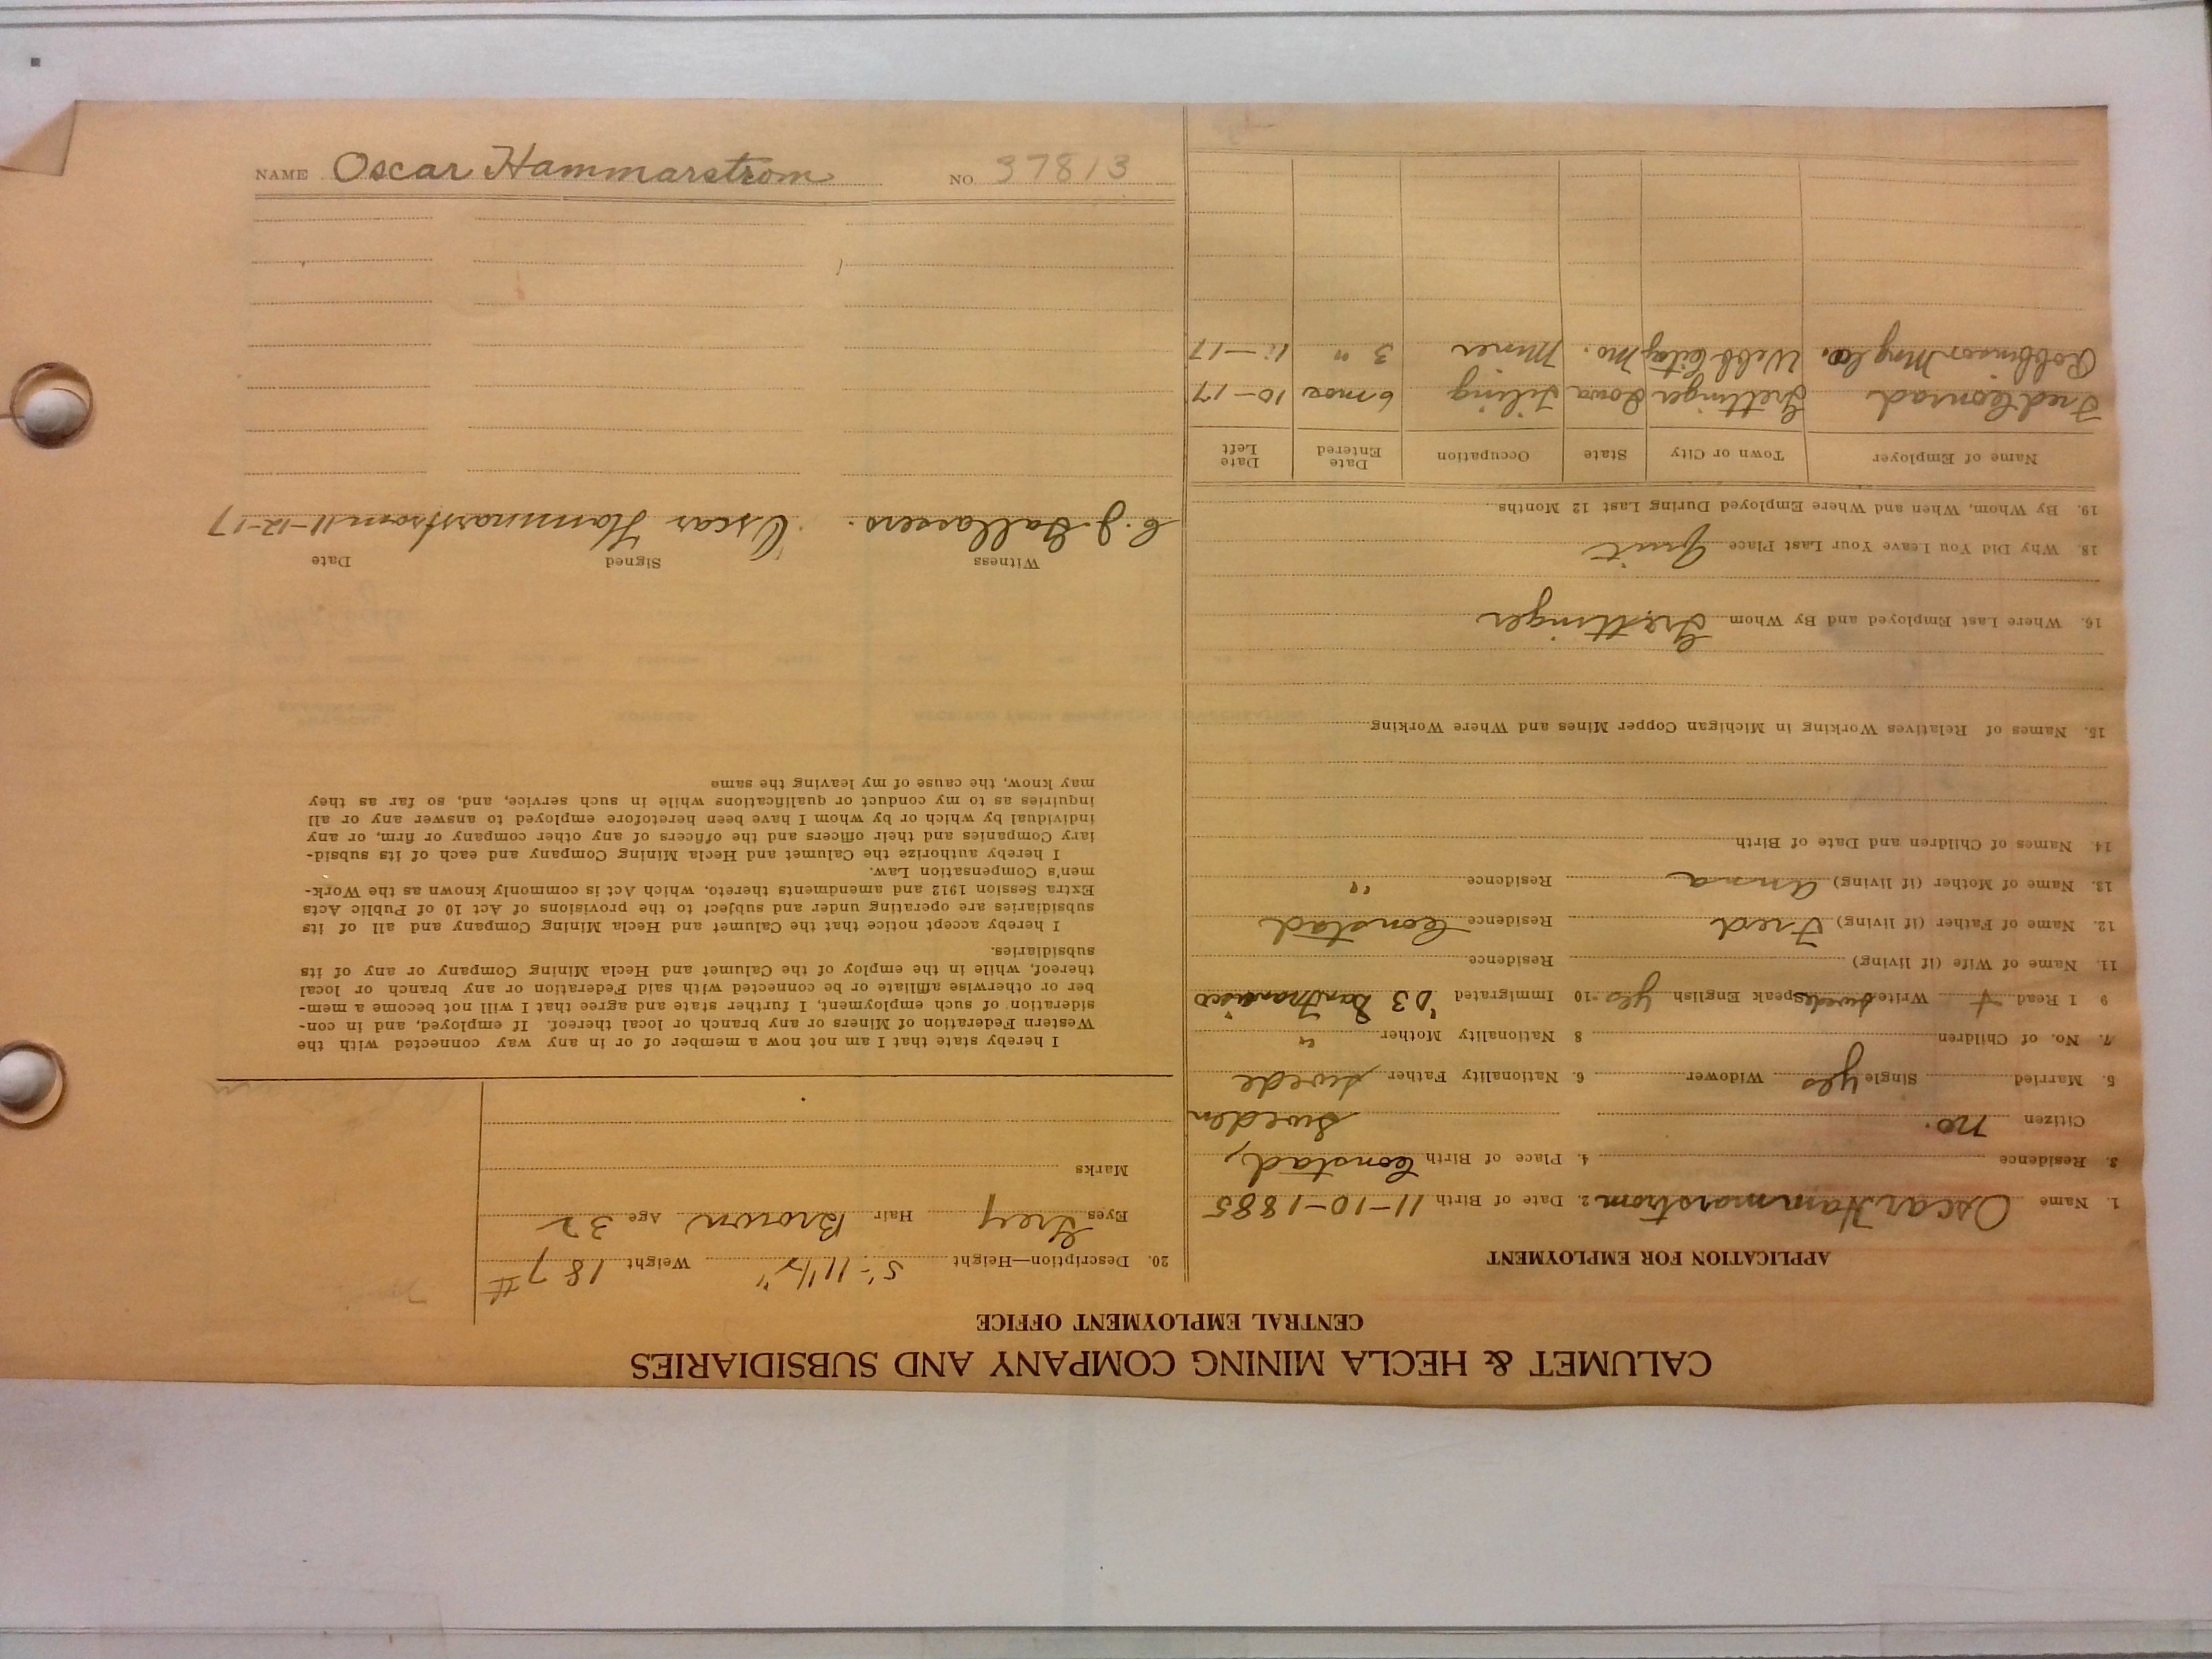 NAME Oscar Hammarstrom NO 37813
CALUMET & HECLA MINING COMPANY AND SUBSIDIARIES
CENTRAL EMPLOYMENT OFFICE
APPLICATION FOR EMPLOYMENT
1. Name Oscar Hammarstrom 2. Date of Birth 11-10-1885
3. Residence 4. Place of Birth Constad,
Citizen no. Sweden
5. Married Single yes Widower 6. Nationality Father Swede
7. No. of Children 8 Nationality Mother "
9 I Read + Write Swedes Speak English yes 10 Immigrated '03 San Francisco
11. Name of Wife (if living) Residence
12. Name of Father (if living) Fred Residence Constad
13. Name of Mother (if living) Anna Residence "
14. Names of Children and Date of Birth
15. Names of Relatives Working in Michigan Copper Mines and Where Working
16. Where Last Employed and By Whom Grettinger
18. Why Did You Leave Your Last Place Quit
19. By Whom, When and Where Employed During Last 12 Months
Name of Employer Town or City State Occupation Date Entered Date Left
Fred Conrad Grettinger Iowa Tiling 6 mos 10-17
Robbinson Mng Co. Webb City Mo. Miner 3 " 11-17
20. Description—Height 5'-11 1/2" Weight 187 #
Eyes Grey Hair Brown Age 32
Marks
I hereby state that I am not now a member of or in any way connected with the
Western Federation of Miners or any branch or local thereof. If employed, and in con-
sideration of such employment, I further state and agree that I will not become a mem-
ber or otherwise affiliate or be connected with said Federation or any branch or local
thereof, while in the employ of the Calumet and Hecla Mining Company or any of its
subsidiaries.
I hereby accept notice that the Calumet and Hecla Mining Company and all of its
subsidiaries are operating under and subject to the provisions of Act 10 of Public Acts
Extra Session 1912 and amendments thereto, which Act is commonly known as the Work-
men's Compensation Law.
I hereby authorize the Calumet and Hecla Mining Company and each of its subsid-
iary Companies and their officers and the officers of any other company or firm, or any
individual by which or by whom I have been heretofore employed to answer any or all
inquiries as to my conduct or qualifications while in such service, and, so far as they
may know, the cause of my leaving the same
Witness Signed Date
C. J. Oscar Hammarstrom 11-12-17